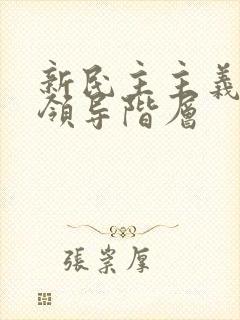 新民主主義
領导階層
張崇厚